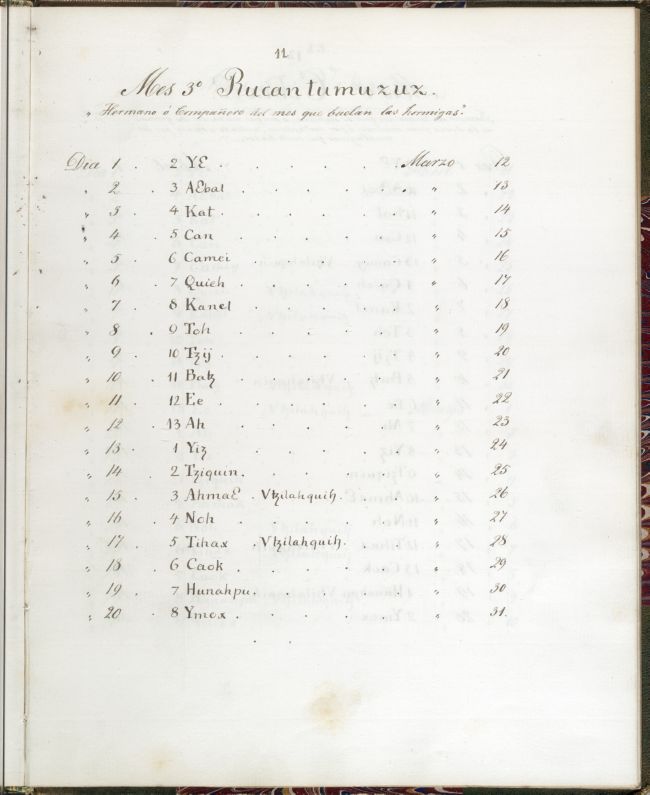 11
Mes 3º Rucantumuzuz.
„ Hermano ó Compañero del mes que buelan las hormigas."
Dia 1 . 2 YƐ . . . . . Marzo 12
„ 2 . 3 AƐbal . . . . . . „ 13
„ 3 . 4 Kat . . . . . „ 14
„ 4 . 5 Can . . . . . „ 15
„ 5 . 6 Camei . . . . . „ 16
„ 6 . 7 Quieh . . . . . „ 17
„ 7 . 8 Kanel . . . . . „ 18
„ 8 . 9 Toh . . . . . „ 19
„ 9 . 10 Tzij . . . . . „ 20
„ 10 . 11 Batz . . . . . „ 21
„ 11 . 12 Ee . . . . . „ 22
„ 12 . 13 Ah . . . . . „ 23
„ 13 . 1 Yiz . . . . . „ 24
„ 14 . 2 Tziquin . . . . . „ 25
„ 15 . 3 AhmaƐ . Vtzilahquih . . . „ 26
„ 16 . 4 Noh . . . . . „ 27
„ 17 . 5 Tihax . Vtzilahquih . . . „ 28
„ 18 . 6 Caok . . . . . „ 29
„ 19 . 7 Hunahpu . . . . . „ 30
„ 20 . 8 Ymox . . . . . „ 31.